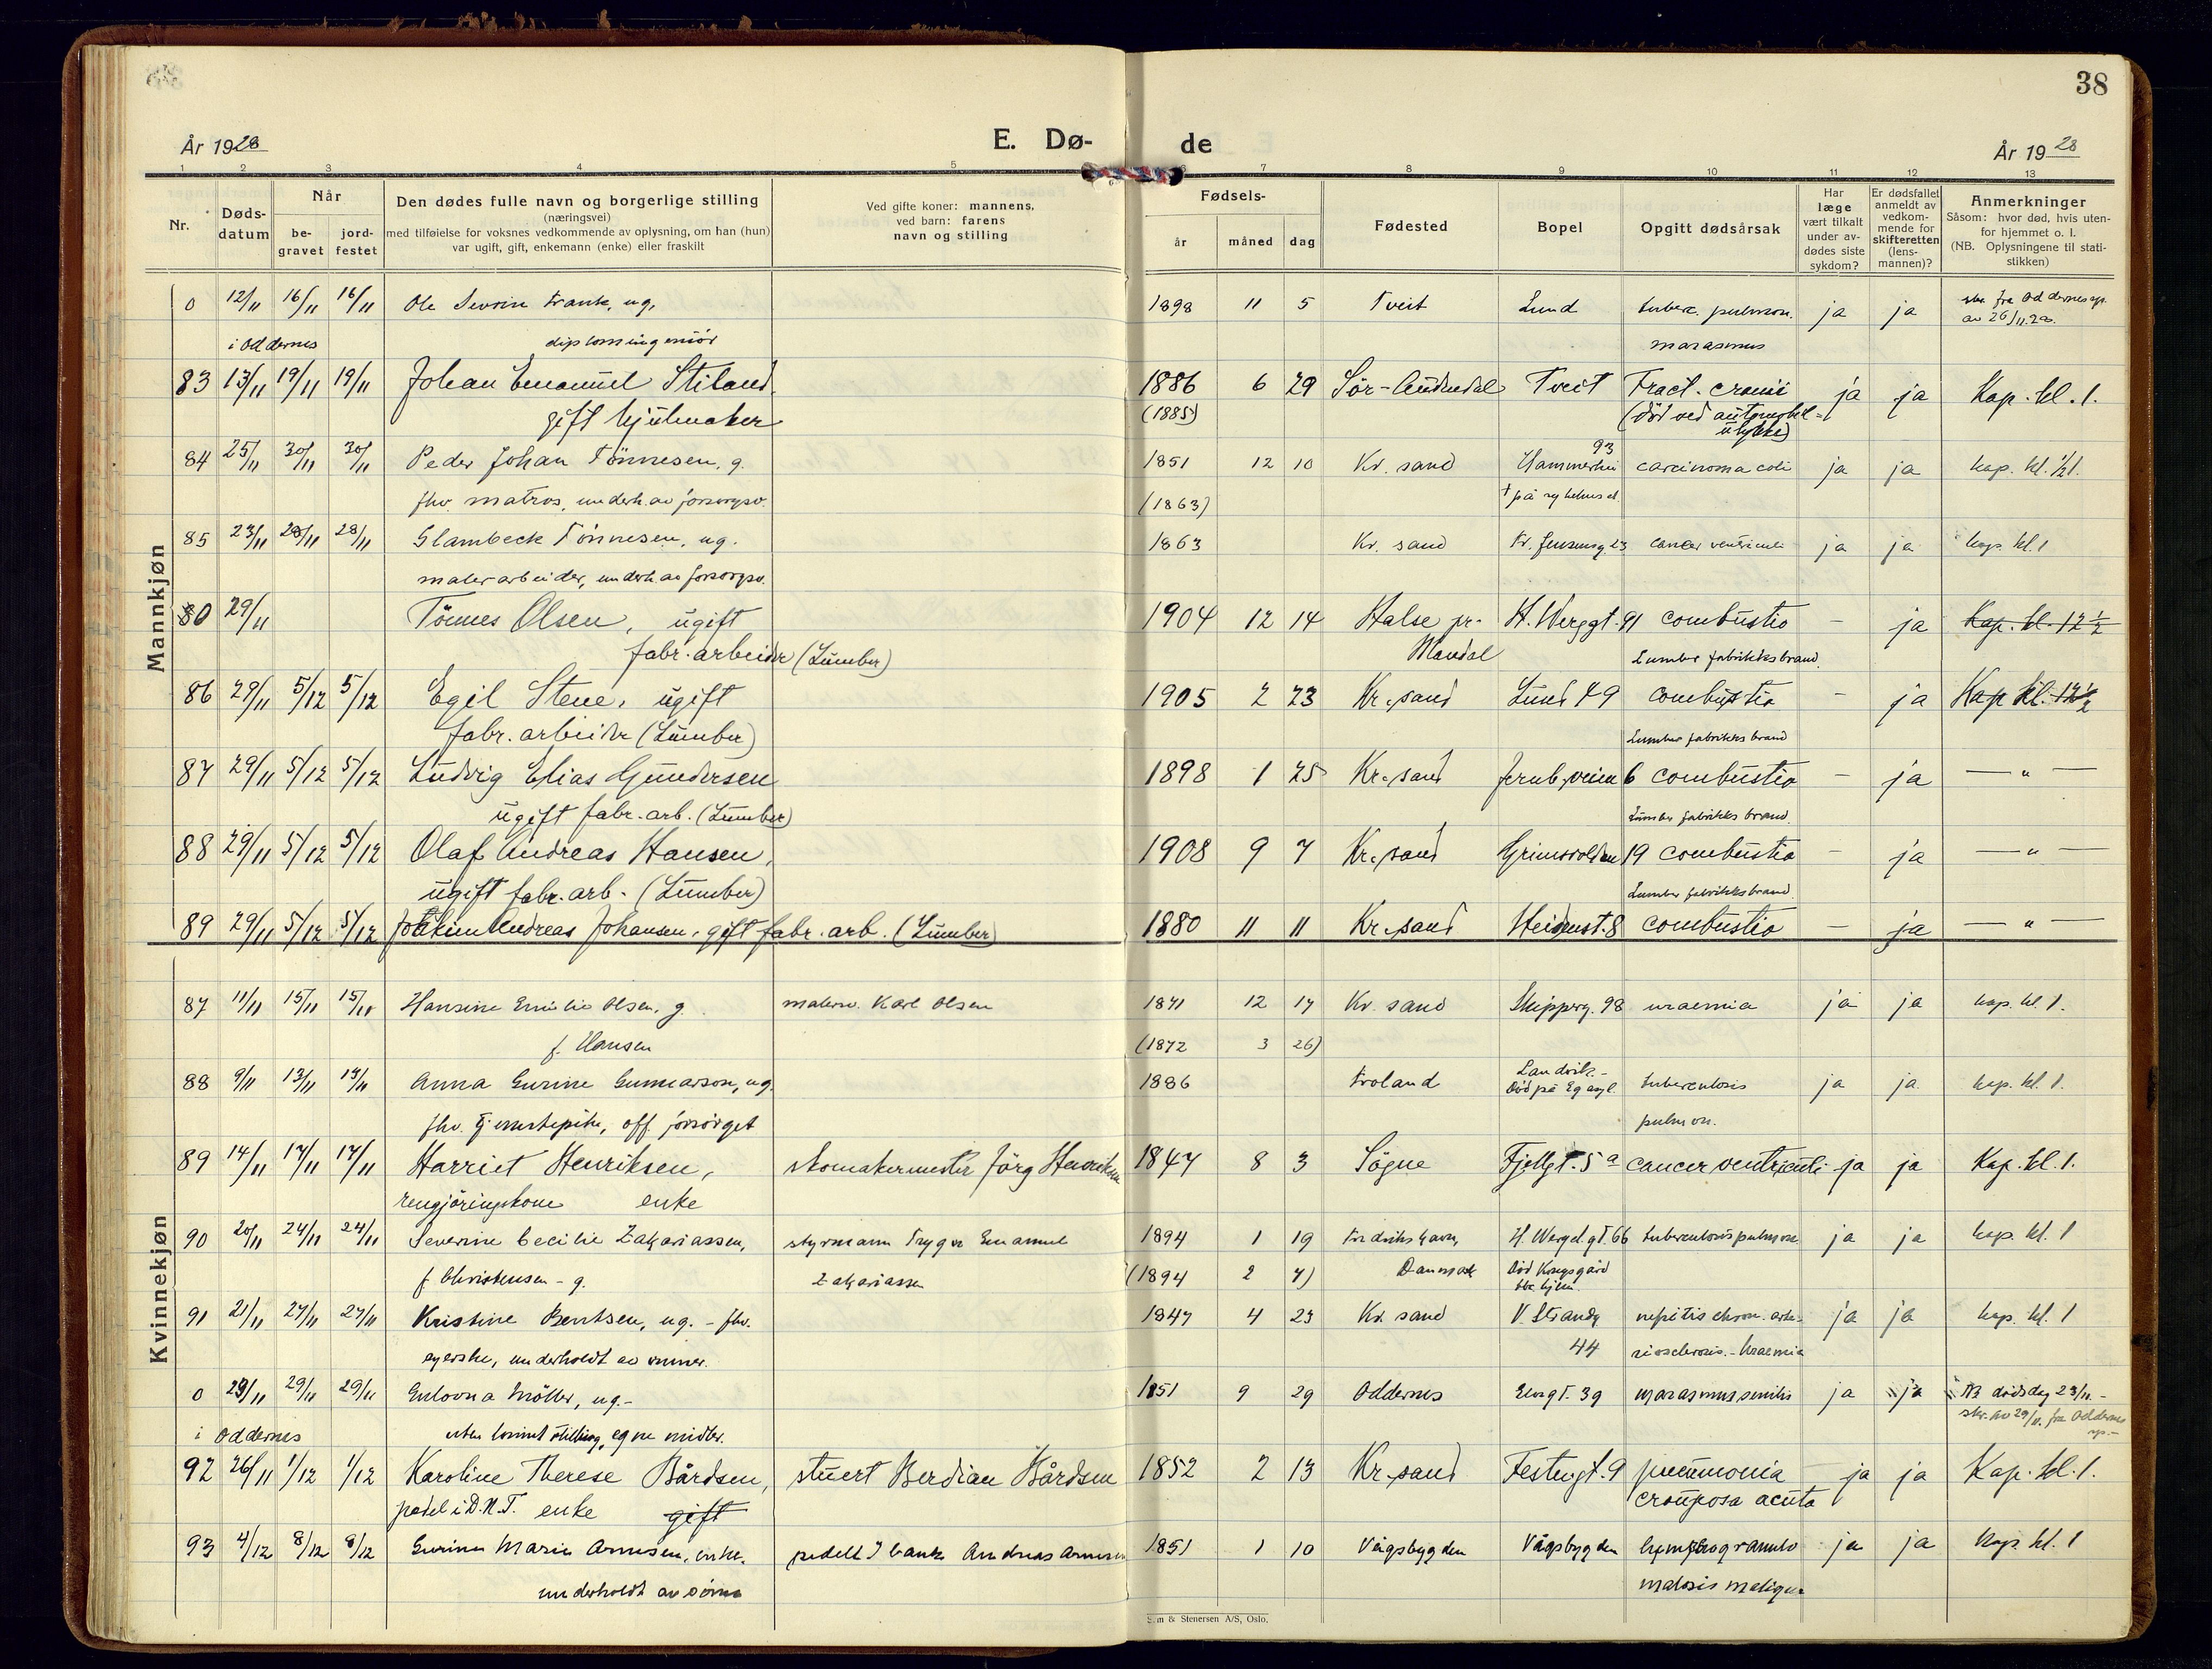 38
År 1928
E. Dø-
de
År 1928
1 2 3 4 5 6 7 8 9 10 11 12 13
Nr.
Døds-
datum
Når
be-
gravet
jord-
festet
Den dødes fulle navn og borgerlige stilling
(næringsvei)
med tilføielse for voksnes vedkommende av oplysning, om han (hun)
var ugift, gift, enkemann (enke) eller fraskilt
Ved gifte koner: mannens,
ved barn: farens
navn og stilling
Fødsels-
år måned dag
Fødested
Bopel
Opgitt dødsårsak
Har
læge
vært tilkalt
under av-
dødes siste
sykdom?
Er dødsfallet
anmeldt av
vedkom-
mende for
skifteretten
(lens-
mannen)?
Anmerkninger
Såsom: hvor død, hvis uten-
for hjemmet o. l.
(NB. Oplysningene til stati-
stikken)
Mannkjøn
0 12/11 16/11 16/11 Ole Sevrin Frank, ug. 1898 11 5 Tveit Lund tuberc. pulmon. ja ja skr. fra Oddernes sp.
i Oddernes diplomingeniör marasmus av 26/11.28.
83 13/11 19/11 19/11 Johan Emanuel Stiland, 1886 6 29 Sör-Audnedal Tveit Fract. cranii ja ja Kap. kl. 1.
gift hjulmaker (1885) (död ved automobil-
ulykke)
84 25/11 30/11 30/11 Peder Johan Tönnesen, g. 1851 12 10 Kr. sand 93 carcinoma coli ja ja kap. kl. 1/2 1.
fhv. matros, underh. av forsorgsv. (1863) † på sykehuset
85 23/11 28/11 28/11 Slambeck Tönnesen, ug. 1863 Kr. sand Kr. Jensensg. 23 cancer ventriculi ja ja kap. kl. 1
malerarbeider, underh. av forsorgsv.
80 29/11 Tönnes Olsen, ugift 1904 12 14 Halse pr. H. Werggt. 91 combustio - ja Kap. kl. 12 1/2
fabr. arbeider (Lumber) Mandal Lumber fabrikks brand.
86 29/11 5/12 5/12 Egil Stene, ugift 1905 2 23 Kr.sand Lund 49 combustio - ja Kap kl. 12 1/2
fabr. arbeider (Lumber) Lumber fabrikks brand
87 29/11 5/12 5/12 Ludvig Elias Gundersen 1898 1 25 Kr.sand Jernb.veien 6 combustio - ja — " —
ugift fabr. arb. (Lumber) Lumber fabrikks brand.
88 29/11 5/12 5/12 Olaf Andreas Hansen, 1908 9 7 Kr.sand Grimsvolden 19 combustio - ja — " —
ugift fabr. arb. (Lumber) Lumber fabrikks brand.
89 29/11 5/12 5/12 Joakim Andreas Johansen, gift fabr. arb. (Lumber) 1880 11 11 Kr.sand 8 combustio - ja — " —
Kvinnekjøn
87 11/11 15/11 15/11 Hansine Emilie Olsen, g. malersv. Karl Olsen 1871 12 17 Kr. sand Skipperg. 98 uraemia ja ja kap. kl. 1.
f. Hansen (1872 3 26)
88 9/11 13/11 13/11 Anna Gurine Gunnarson, ug. 1886 Froland Landvik.- tuberculosis ja ja kap. kl. 1.
fhv. tjenestepike, off. forsörget Död på Eg asyl. pulmon.
89 14/11 17/11 17/11 Harriet Henriksen, skomakermester Jörg Henriksen 1847 8 3 Sögne Fjellgt. 5 a cancer ventriculi ja ja Kap. kl. 1.
rengjöringskone enke
90 20/11 24/11 24/11 Severine Cecilie Zakariassen, styrmann Trygve Emanuel 1894 1 19 Fredrikshavn, H. Wergel. gt. 66 tuberculosis pulmon. ja ja kap. kl. 1
f. Christensen - g. Zakariassen (1894 2 7) Danmark Död Kongsgård
tbc hjem.
91 21/11 27/11 27/11 Kristine Bentsen, ug. - fhv. 1847 4 23 Kr. sand V. Strandg. nefritis chron. arte- ja ja kap. kl. 1
underholdt av 44 riosclerosis. - Uraemia
0 23/11 29/11 29/11 Möller, ug.- 1851 9 29 Oddernes Elvegt. 39 marasmus senilis ja ja NB dödsdag 23/11 -
i Oddernes uten lönnet stilling, egne midler. skr. av 29/11. fra Oddernes
sp.-
92 26/11 1/12 1/12 Karoline Therese Bårdsen, stuert Berdian Bårdsen 1852 2 13 Kr.sand Festngt. 9 pneumonia ja ja Kap. kl. 1.
pedel i D.N.T. enke gift crouposa acuta
93 4/12 8/12 8/12 Gurine Marie Arnesen, enke. pedell i bank Andreas Arnesen 1851 1 10 Vågsbygden Vågsbygden lymphogranulo ja ja kap. kl. 1
underholdt av sönn matosis maligna
Sem & Stenersen A/S, Oslo.